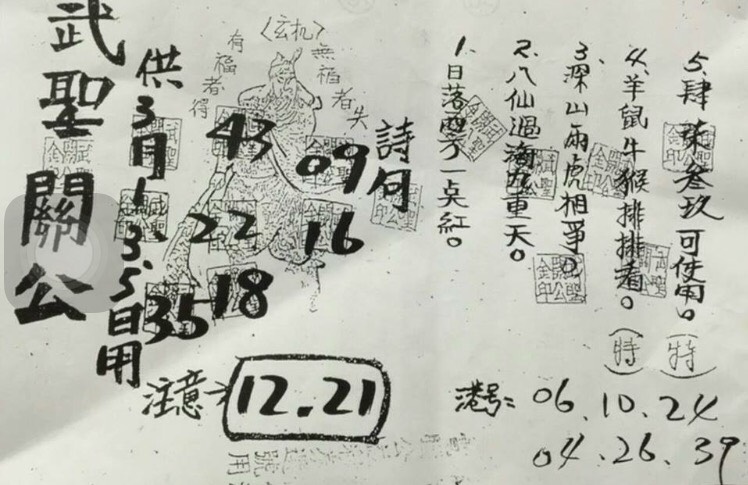 武聖關公
供3月1.3.5日用
〈玄机〉
有福者得
無福者失
43
09
22
16
18
35
注意
12.21
詩句
1.日落雲下一点紅。
2.八仙過海九重天。
3.深山兩虎相爭。
4.羊鼠牛猴排排看。(特)
5.肆柒叁玖可使用。(特)
港号: 06.10.24
04.26.39